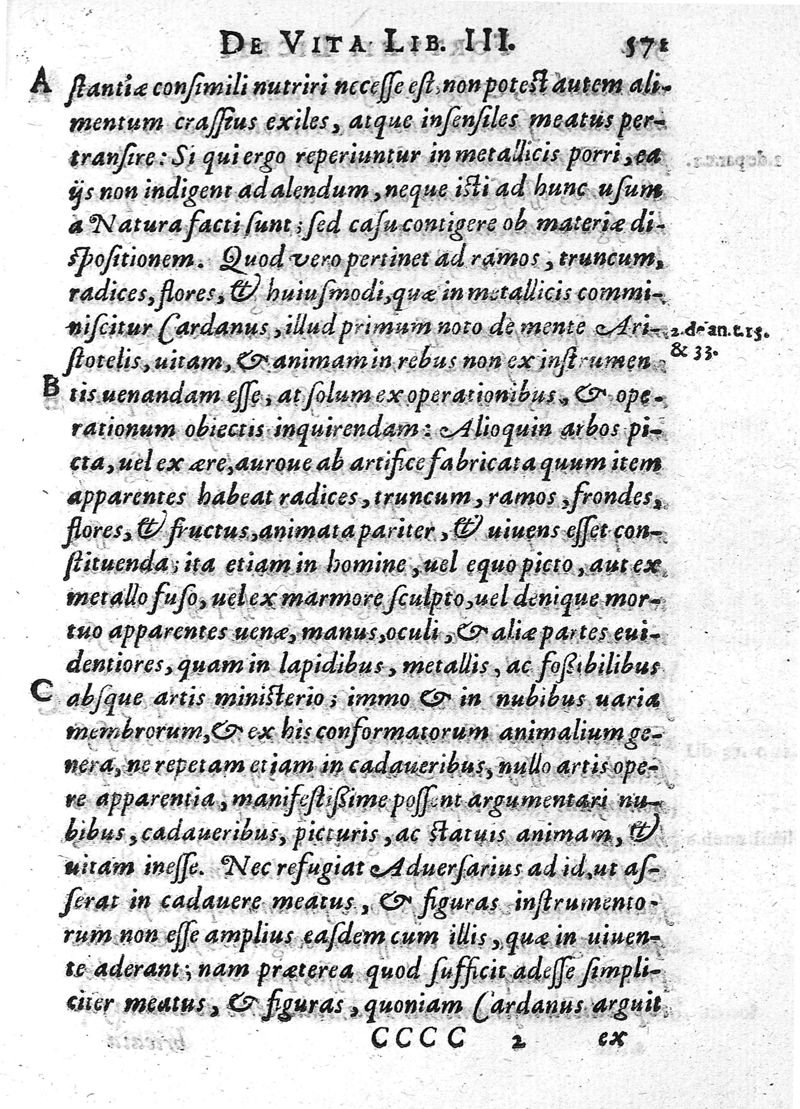 DE VITA LIB. III. 571
A ſtantiæ conſimili nutriri neceſſe eſt, non poteſt autem ali-
mentum craſſius exiles, atque inſenſiles meatus per-
tranſire: Si qui ergo reperiuntur in metallicis porri, ea
ijs non indigent ad alendum, neque iſti ad hunc uſum
a Natura facti ſunt; ſed caſu contigere ob materiæ di-
ſpoſitionem. Quod vero pertinet ad ramos, truncum,
radices, flores, & huiuſmodi, quæ in metallicis commi-
niſcitur Cardanus, illud primum noto de mente Ari-
2. de an. t. 15.
& 33.
ſtotelis, uitam, & animam in rebus non ex inſtrumen
B tis uenandam eſſe, at ſolum ex operationibus, & ope-
rationum obiectis inquirendam: Alioquin arbos pi-
cta, uel ex ære, auroue ab artifice fabricata quum item
apparentes habeat radices, truncum, ramos, frondes,
flores, & fructus, animata pariter, & uiuens eſſet con-
ſtituenda; ita etiam in homine, uel equo picto, aut ex
metallo fuſo, uel ex marmore ſculpto, uel denique mor-
tuo apparentes uenæ, manus, oculi, & aliæ partes eui-
dentiores, quam in lapidibus, metallis, ac foſſibilibus
C abſque artis miniſterio; immo & in nubibus uaria
membrorum, & ex his conformatorum animalium ge-
nera, ne repetam etiam in cadaueribus, nullo artis ope-
re apparentia, manifeſtiſſime poſſent argumentari nu-
bibus, cadaueribus, picturis, ac ſtatuis animam, &
uitam ineſſe. Nec refugiat Aduerſarius ad id, ut aſ-
ſerat in cadauere meatus, & figuras inſtrumento-
rum non eſſe amplius eaſdem cum illis, quæ in uiuen-
te aderant; nam præterea quod ſufficit adeſſe ſimpli-
citer meatus, & figuras, quoniam Cardanus arguit
CCCC 2 ex